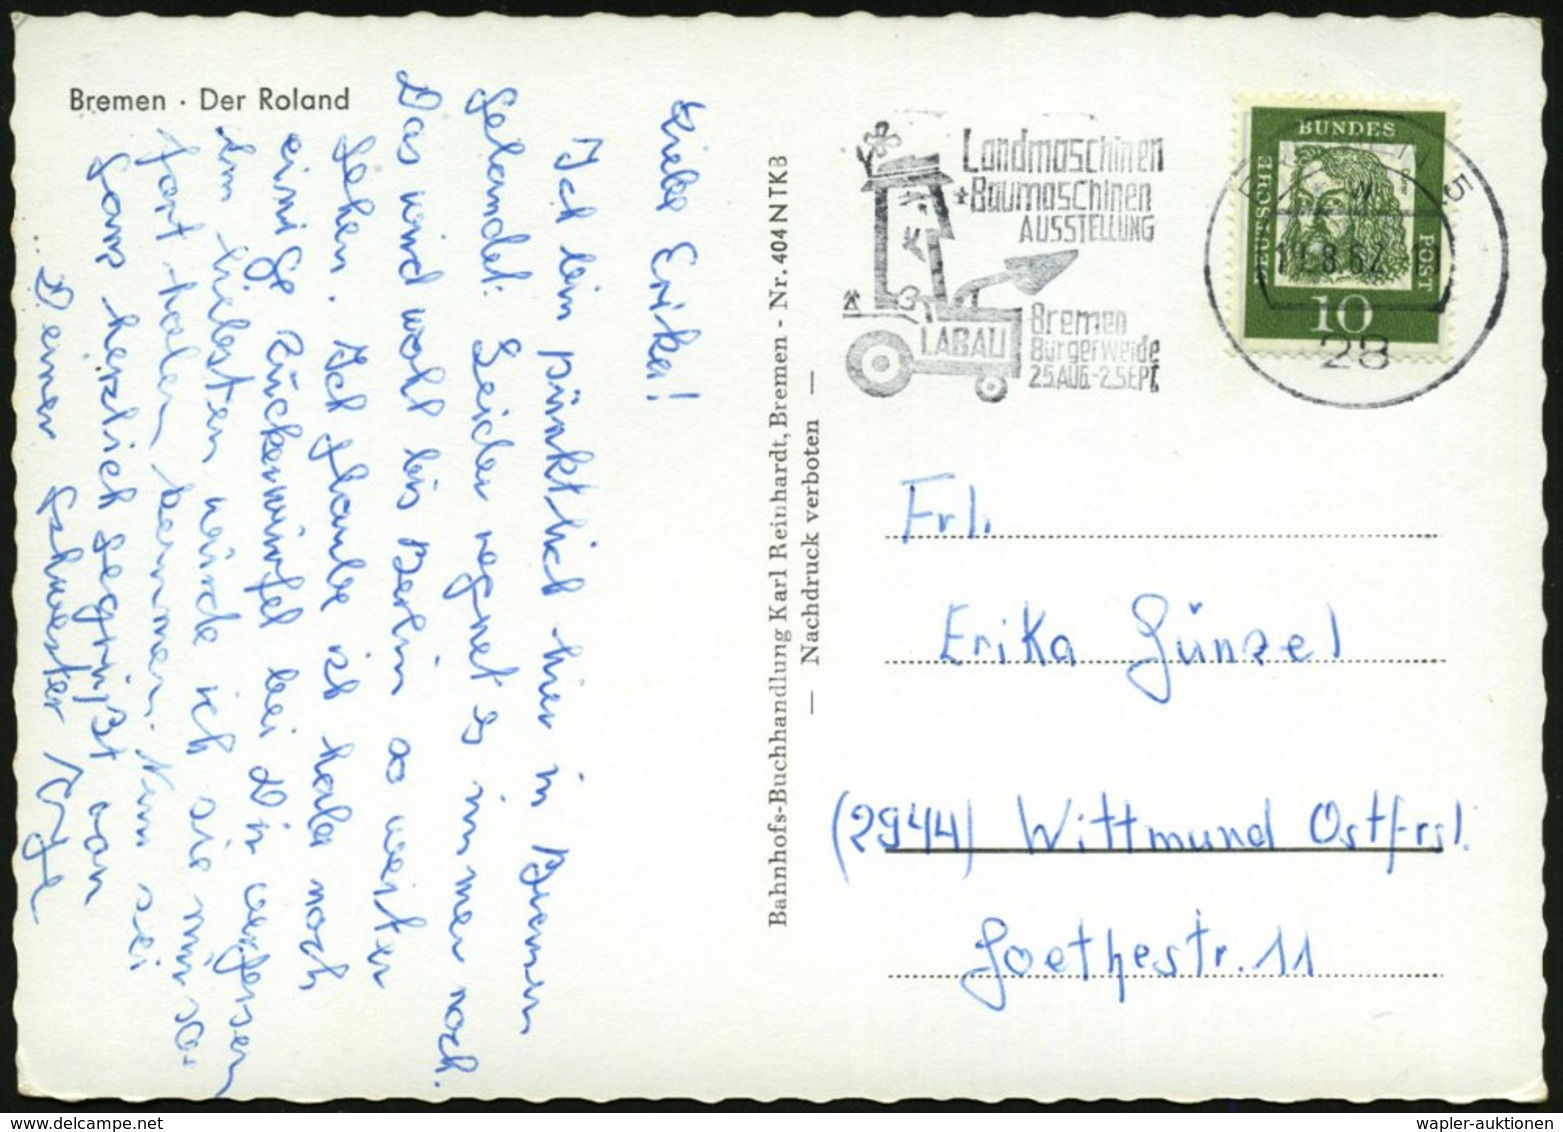 Bremen · Der Roland
Liebe Erika!
Ich bin pünktlich hier in Bremen
gelandet. Leider regnet es immer noch.
Das wird wohl bis Berlin so weiter
gehen. Ich glaube ich habe noch
einige Zuckerwürfel bei Dir vergessen
Am liebsten würde ich sie mir so-
fort holen kommen. Nun sei
ganz herzlich gegrüßt von
Deiner Schwester
Bahnhofs-Buchhandlung Karl Reinhardt, Bremen - Nr. 404 N TKB
— Nachdruck verboten —
Landmaschinen
+Baumaschinen
AUSSTELLUNG
LABAU
Bremen
Bürgerweide
25.AUG.-2.SEPT.
BREMEN 5
W
19.8.62
28
DEUTSCHE
BUNDES
POST
10
Frl.
Erika Günzel
(2944) Wittmund Ostfrsl.
Goethestr. 11
wapler-auktionen